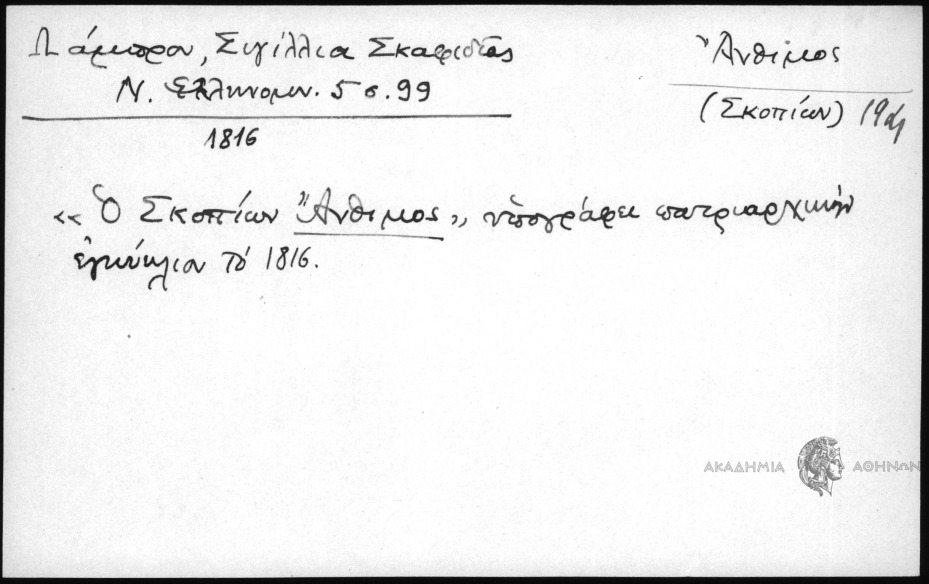 Λάμπρου, Σιγίλλια Σκαφιδιᾶς
Ν. Ἑλληνομν. 5 σ. 99
1816
Ἄνθιμος
(Σκοπίων) 19
« Ὁ Σκοπίων Ἄνθιμος », ὑπογράφει πατριαρχικὴν
ἐγκύκλιον τό 1816.
ΑΚΑΔΗΜΙΑ ΑΘΗΝΩΝ